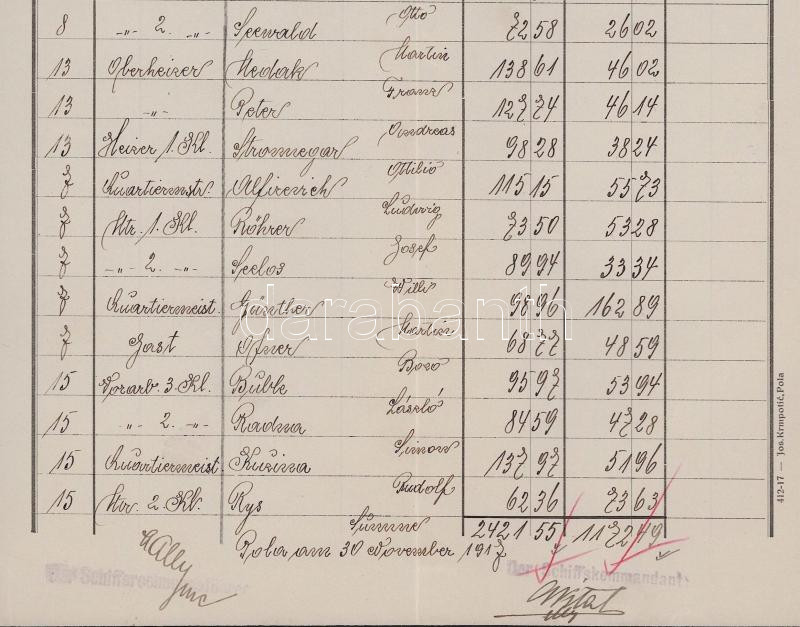 8 -„- 2. -„- Seewald Otto 72 58 26 02
13 Oberheizer Hedak Martin 138 61 46 02
13 -„- Peter Franz 127 74 46 14
13 Heizer 1. Kl. Stromegar Andreas 98 28 38 24
7 Quartiermstr. Alfirevich Ottilio 115 15 55 73
7 Mtr. 1. Kl. Röhrer Ludwig 73 50 53 28
7 -„- 2. -„- Seelos Josef 89 94 33 34
7 Quartiermeist. Günther Willi 98 96 162 89
7 Gast Ofner Martin 68 77 48 59
15 Vorarb. 3. Kl. Buble Bozo 95 97 53 94
15 -„- 2. -„- Radna László 84 59 47 28
15 Quartiermeist. Kuzina Simon 137 97 51 96
15 Mtr. 2. Kl. Rys Rudolf 62 36 73 63
Summe 2421 55 1172 49
Pola am 30 November 1917
Der Schiffskommandant:
412-17 — Jos. Krmpotić, Pola
darabanth